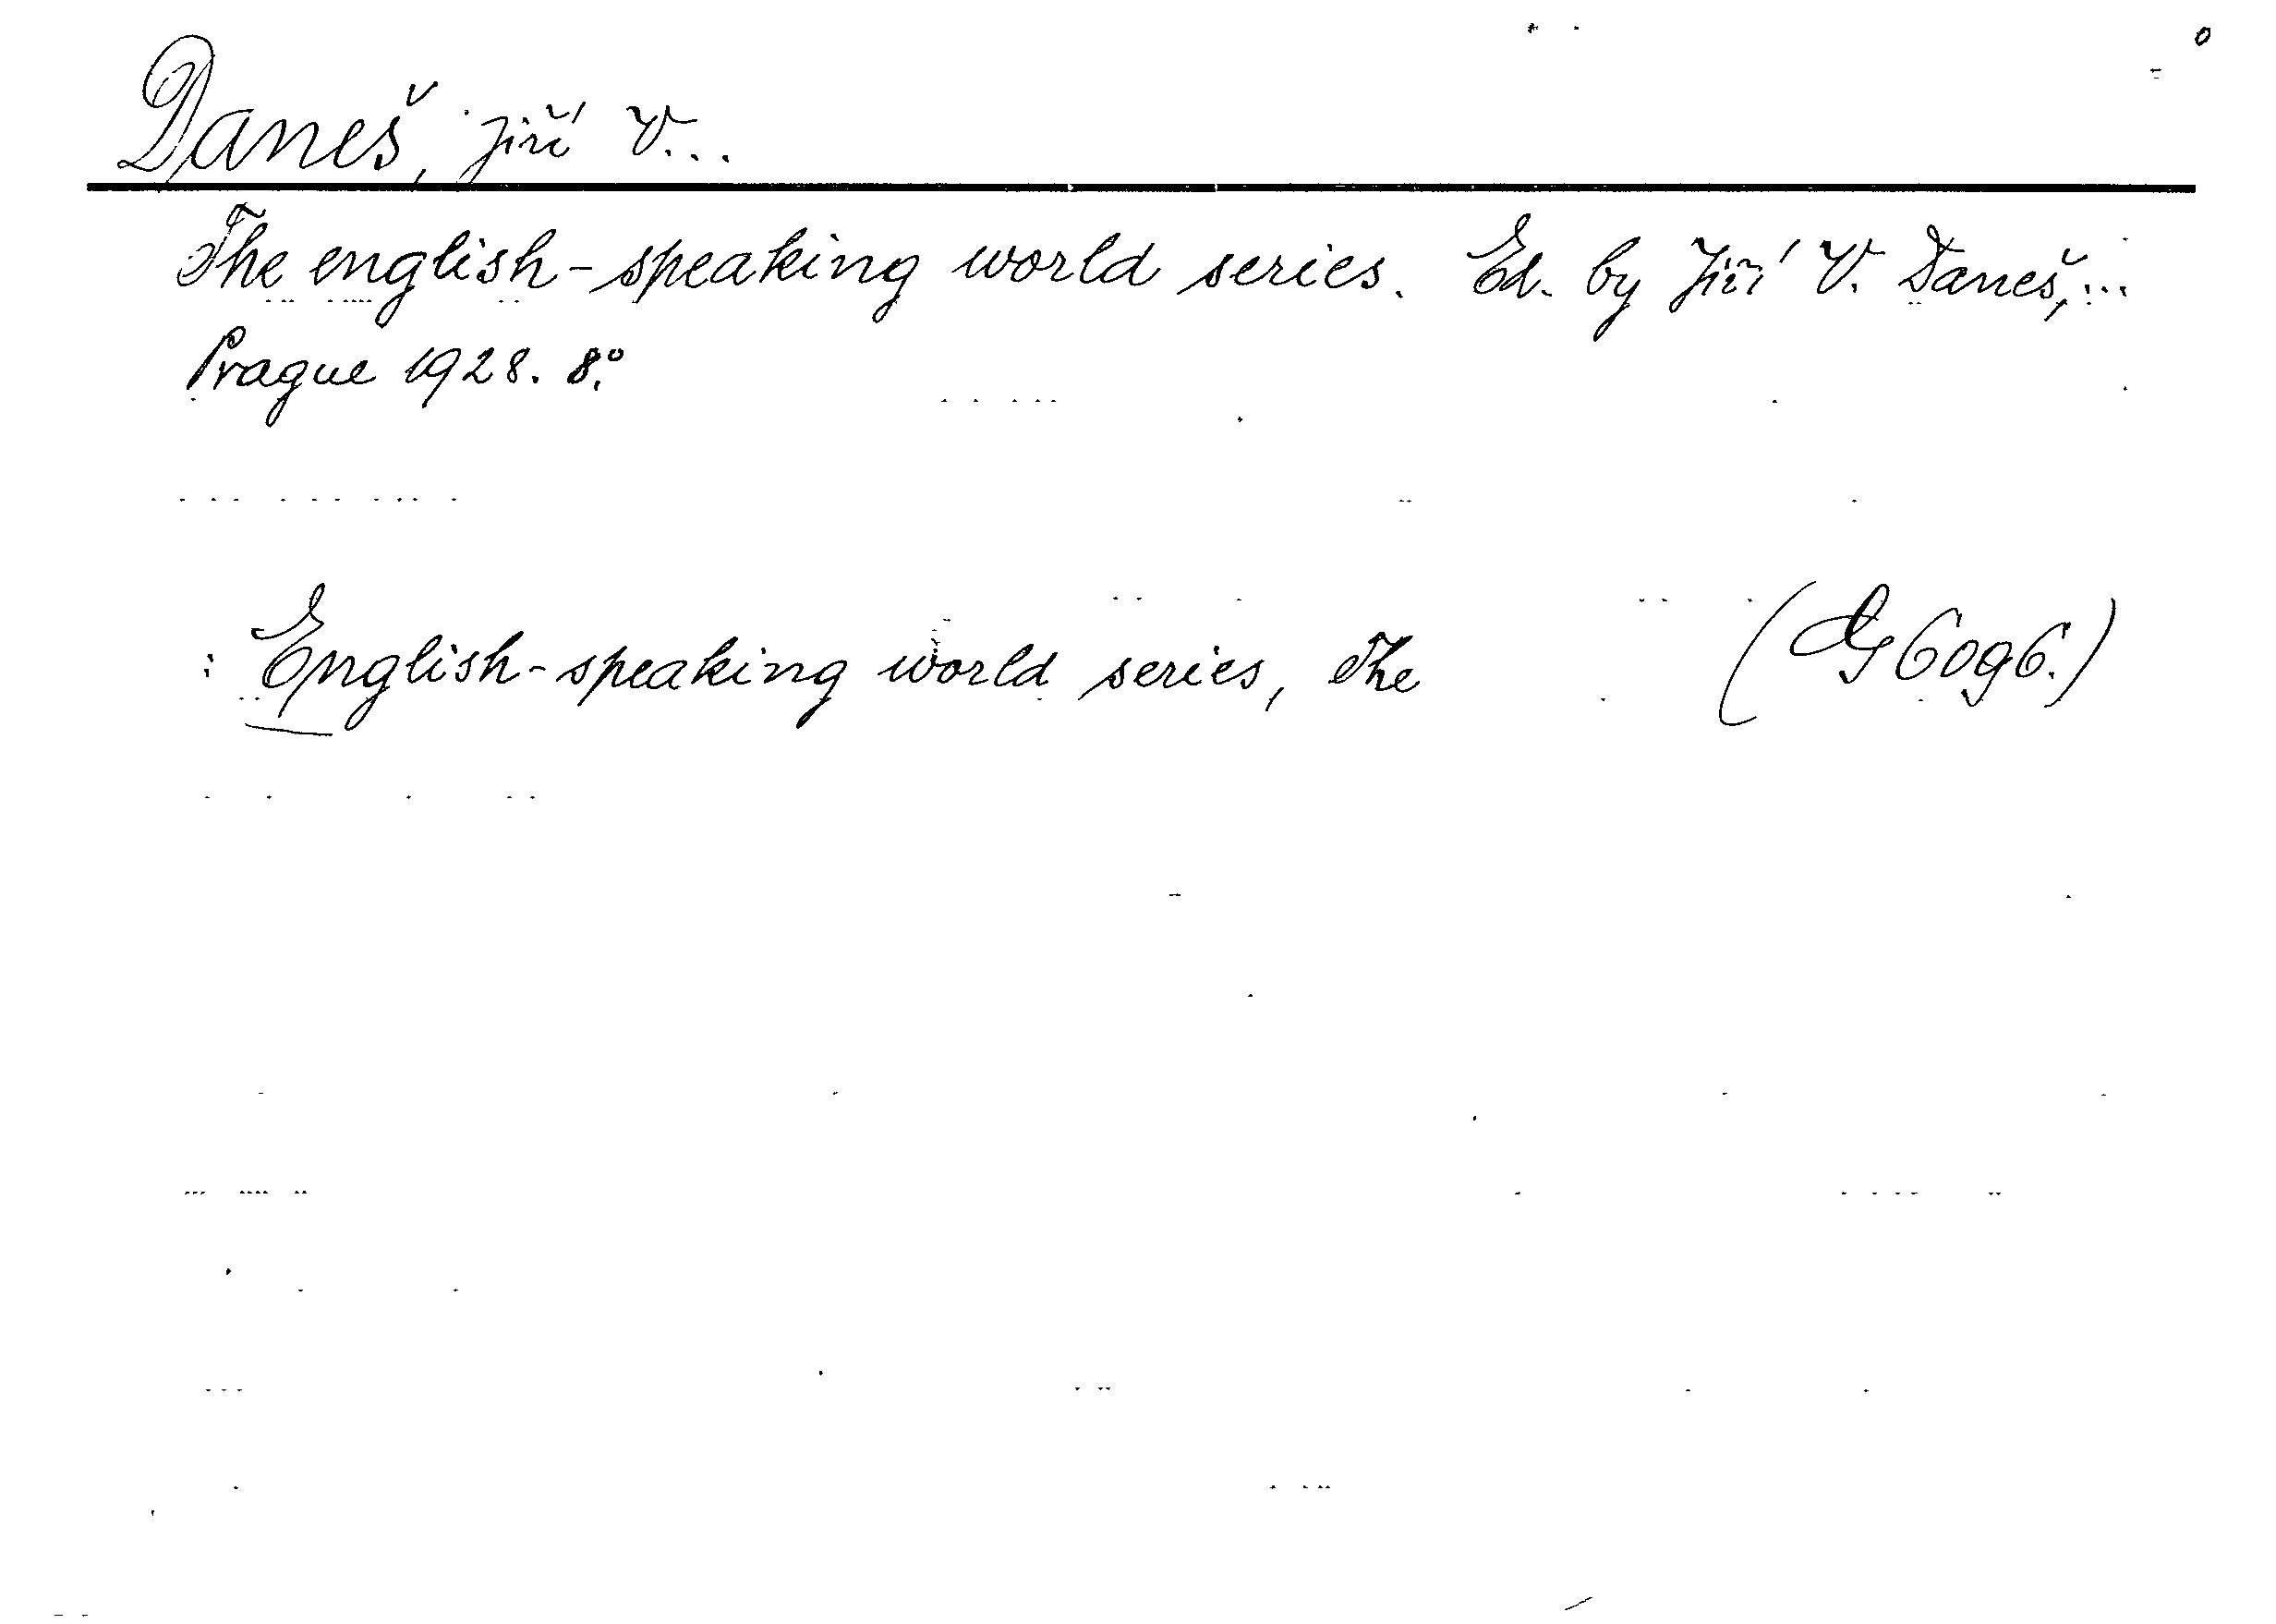 Daneš, Jiří V...
The english-speaking world series. Ed. by Jiří V. Daneš,...
Prague 1928. 8.°
: English-speaking world series, The (G 6096.)